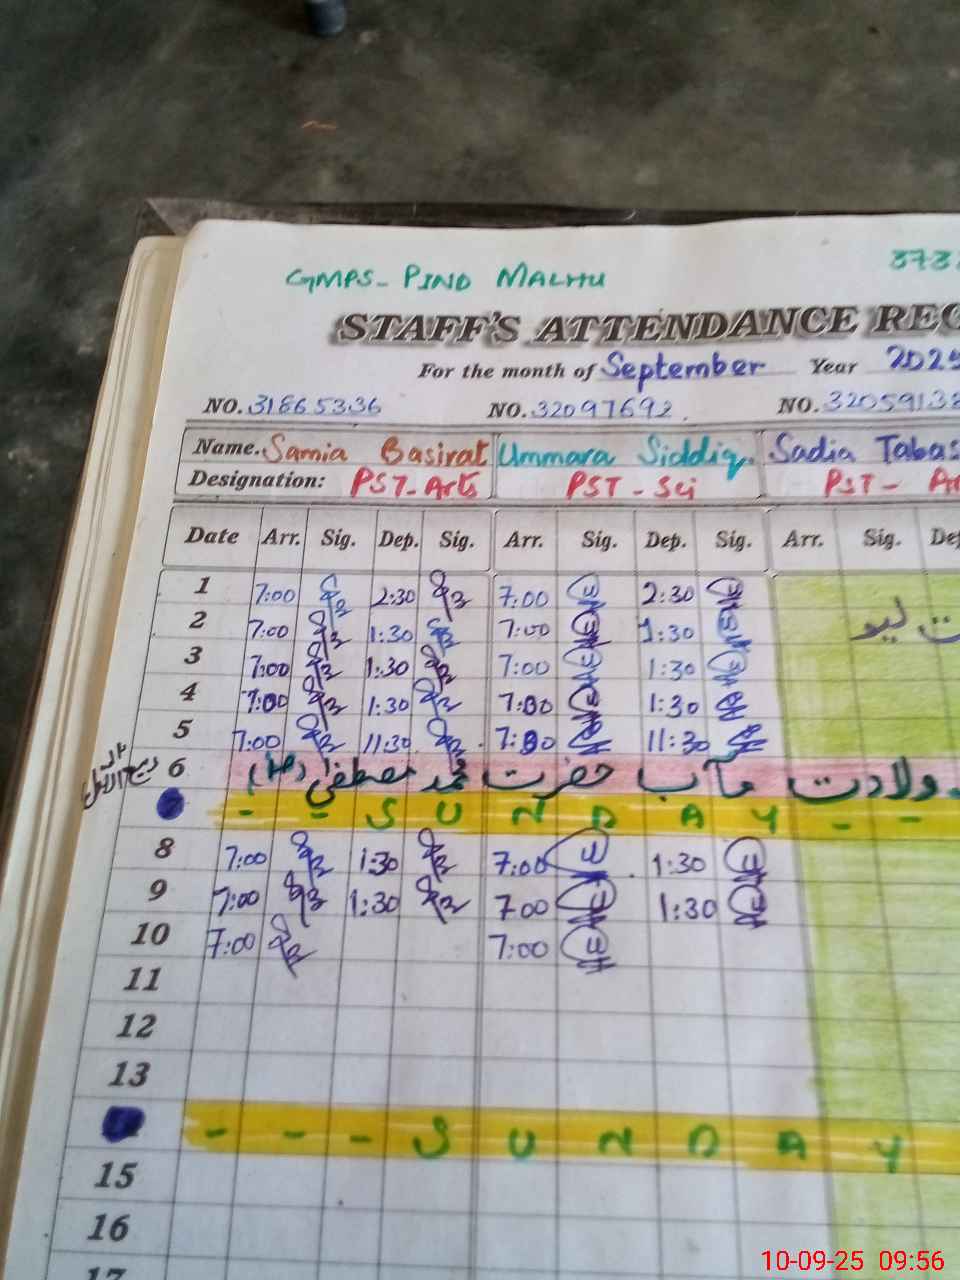 GMPS- PIND MALHU 373
STAFF'S ATTENDANCE REG
For the month of September Year 2025
NO. 31865336 NO. 32097692. NO. 32059138
Name. Samia Basirat Ummara Siddiq. Sadia Tabas
Designation: PST-Arts PST - Sci PST - Ar
Date Arr. Sig. Dep. Sig. Arr. Sig. Dep. Sig. Arr. Sig. De
1 7:00 2:30 7:00 2:30
2 7:00 1:30 7:00 1:30 لیو
3 7:00 1:30 7:00 1:30
4 7:00 1:30 7:00 1:30
5 7:00 11:30 7:00 11:30
ربیع الاول
6 ولادت مآب حضرت محمد مصطفیٰ (ﷺ)
- - S U N D A Y - -
8 7:00 1:30 7:00 1:30
9 7:00 1:30 700 1:30
10 7:00 7:00
11
12
13
- - - S U N D A Y
15
16
17
10-09-25 09:56